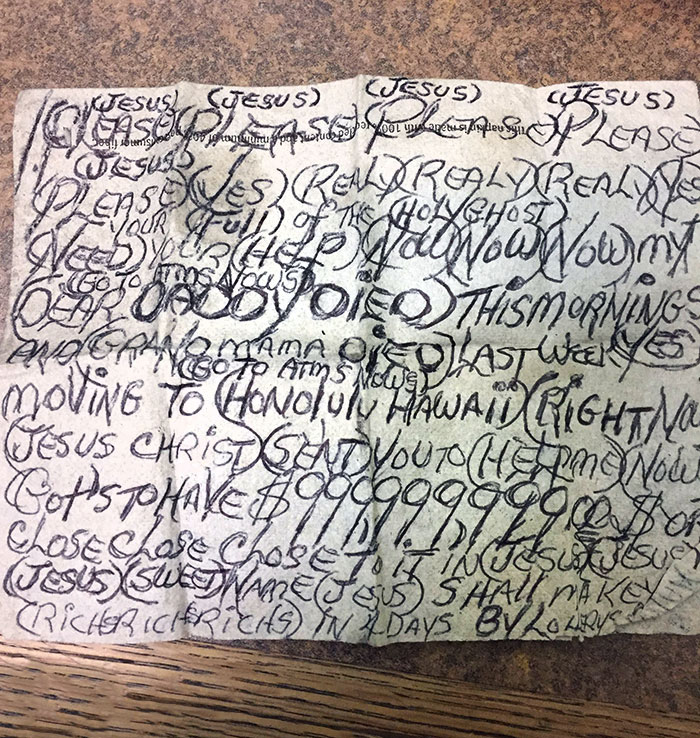 (JESUS) (JESUS) (JESUS) (JESUS)
(PLEASE) (PLEASE) (PLEASE) (PLEASE)
(JESUS)
(PLEASE) (YES) (REALY) (REALY) (REALY) (YES
YOUR (FUll) OF THE (HOLY GHOST)
(NEED) YOUR (HELP) (NOW) (NOW) (NOW) MY
(GO TO ATMS NOWS)
(DEAR DADDY DiED) THIS MORNINGS
AND (GRANDMAMA DiED) LAST WEEK (YES)
(GO TO ATMS NOWS)
MOViNG TO (HONOlUlU HAWAii) (RiGHT NOW
(JESUS CHRIST) (SENT YOU TO (HElP ME) NOW
(GOT'S TO HAVE $
CLOSE CLOSE CLOSE TO iT iN (JESUS) (JESUS
(JESUS) (SWEET) NAME (JESUS) SHAll MAKE Y
(RICHS RICHS RICHS) IN 2 DAYS BY